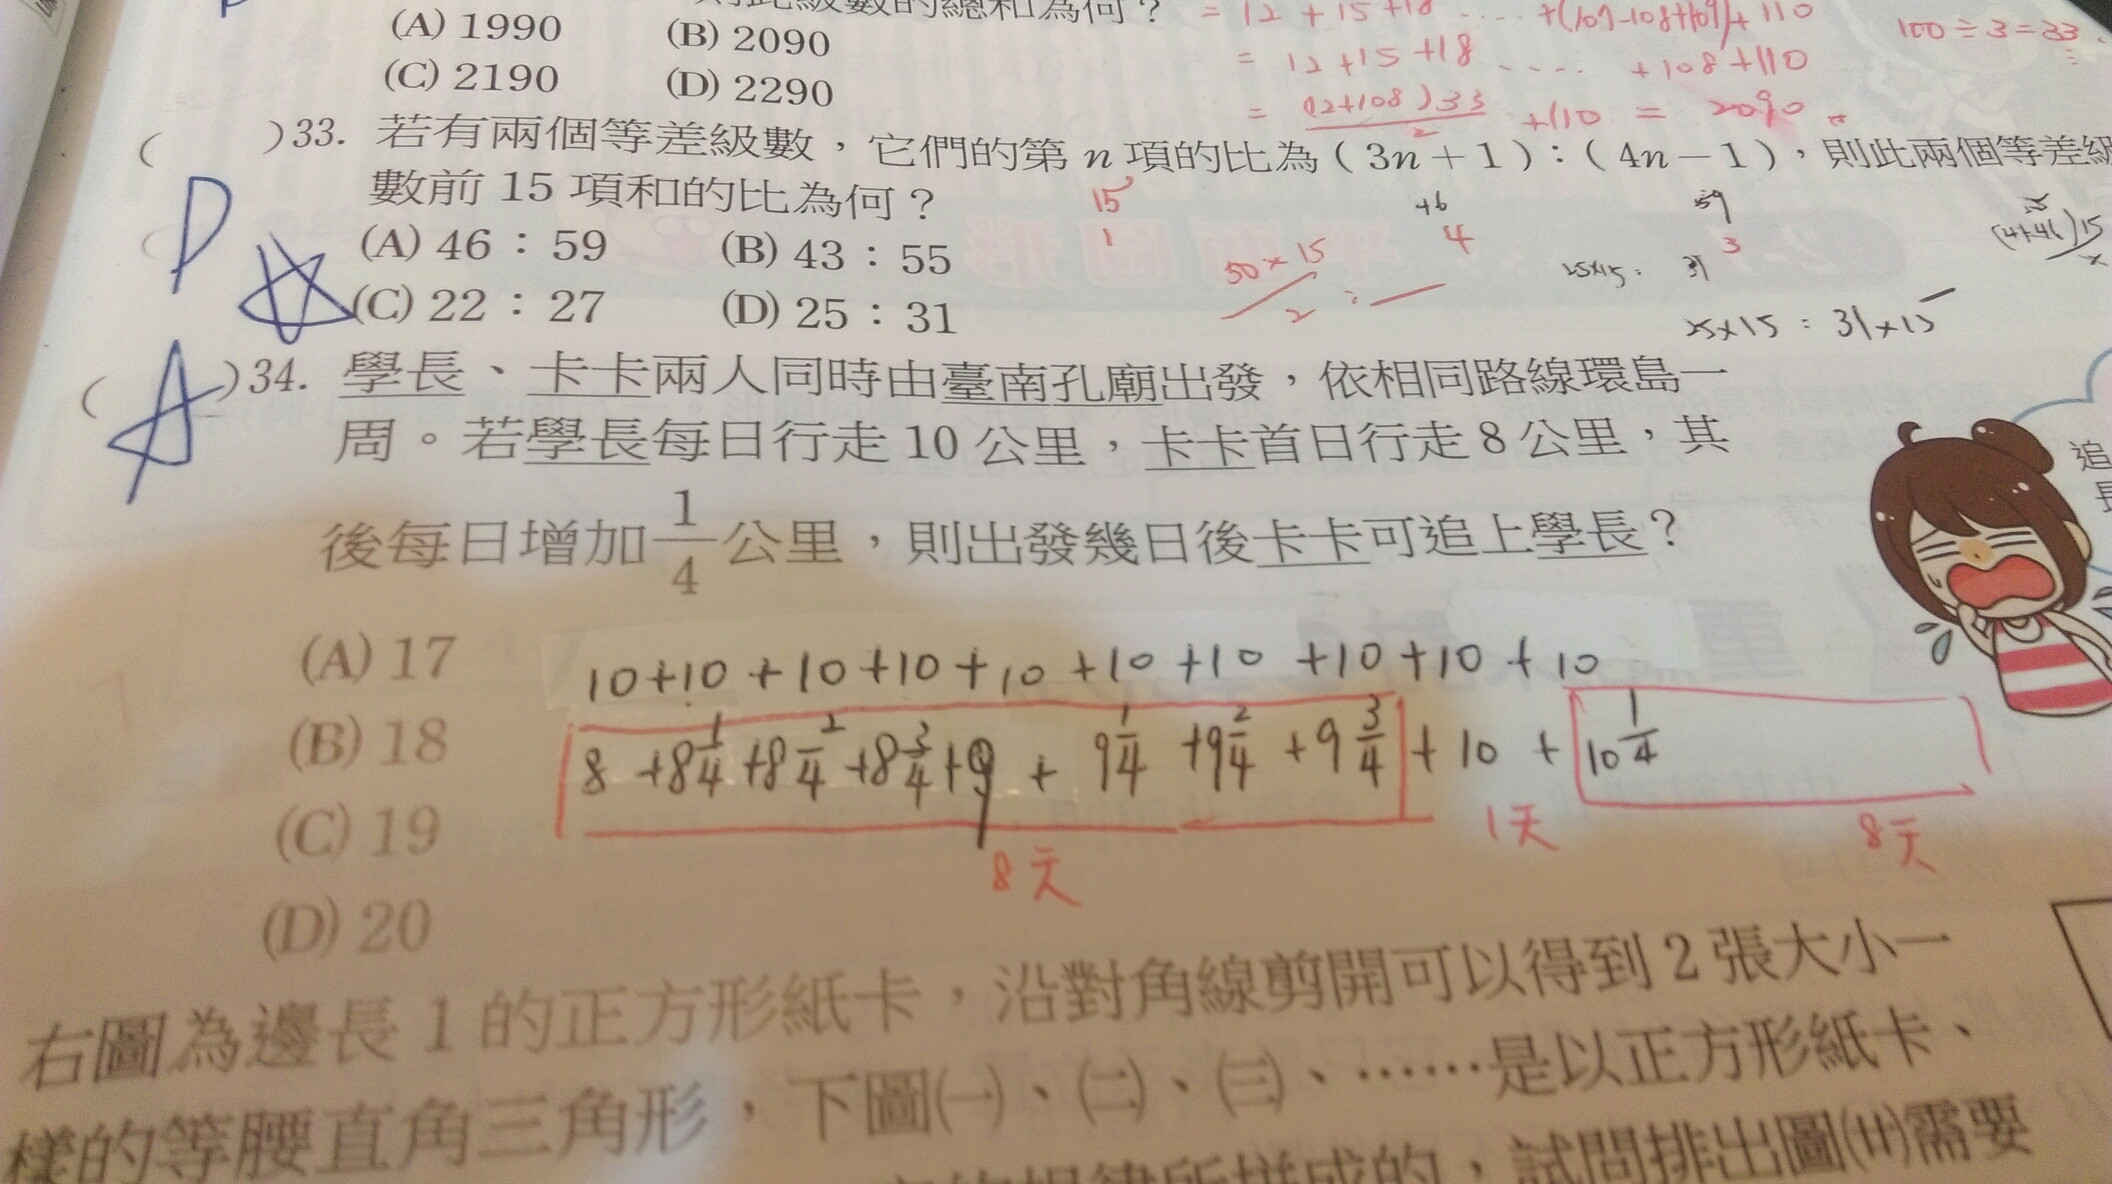 數的總和為何？
= 12 + 15 + 18 ‥‥ +(107-108+109)+ 110
(A) 1990 (B) 2090
= 12+15+18 ‥‥ +108+110
100÷3=33
(C) 2190 (D) 2290
= (12+108)33/2 +110 = 2090
( )33. 若有兩個等差級數，它們的第 n 項的比為（3n＋1）：（4n－1），則此兩個等差級
數前 15 項和的比為何？
D
15 +6 59
1 4 3
(A) 46：59 (B) 43：55
50×15/2 :
25×15 : 31
(C) 22：27 (D) 25：31
25×15 : 31×15
( A )34. 學長、卡卡兩人同時由臺南孔廟出發，依相同路線環島一
周。若學長每日行走 10 公里，卡卡首日行走 8 公里，其
後每日增加 1/4 公里，則出發幾日後卡卡可追上學長？
追
(A) 17
10+10+10+10+10+10+10+10+10+10
(B) 18
8+8 1/4+8 2/4+8 3/4+9+9 1/4+9 2/4+9 3/4+10+10 1/4
(C) 19
8天 1天 8天
(D) 20
右圖為邊長 1 的正方形紙卡，沿對角線剪開可以得到 2 張大小一
樣的等腰直角三角形，下圖㈠、㈡、㈢、……是以正方形紙卡、
的規律所拼成的，試問排出圖(廿)需要